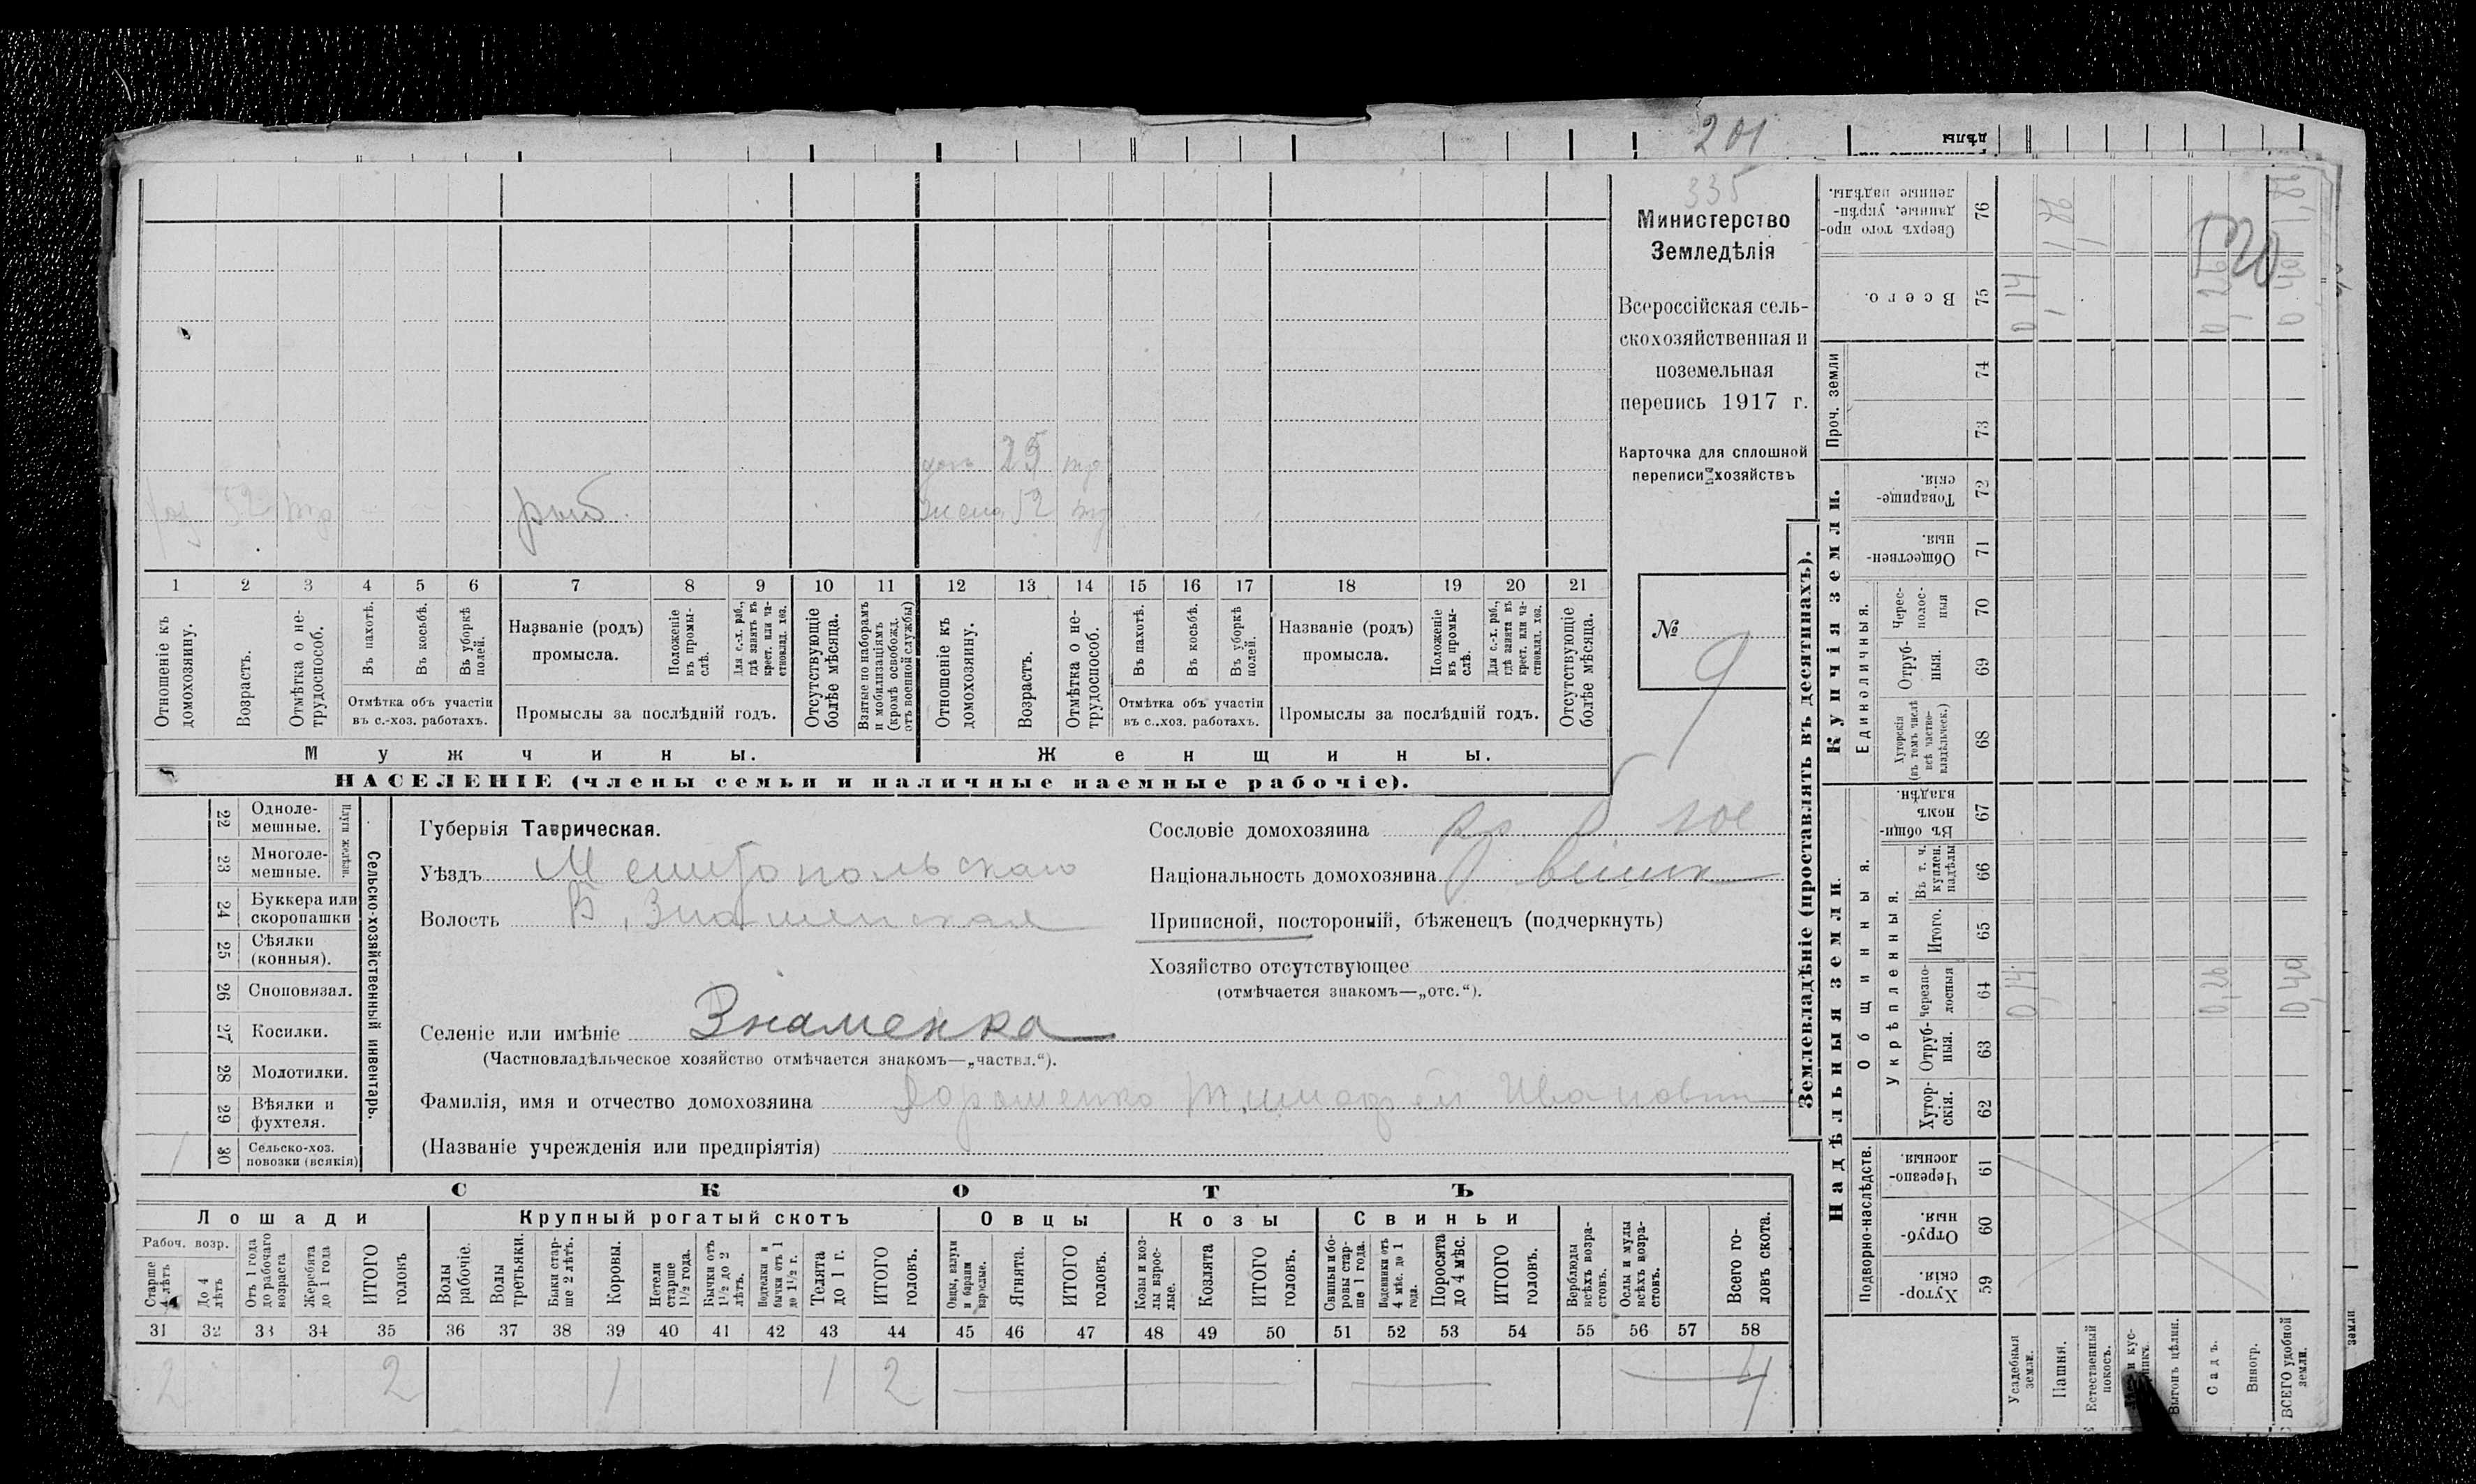 201
дѣлы
335
Министерство
Земледѣлія
Всероссійская сель-
скохозяйственная и
поземельная
перепись 1917 г.
Карточка для сплошной
переписи хозяйствъ
№ 9
дочь 25 тр
52 тр рыб. жена 52 тр
1 2 3 4 5 6 7 8 9 10 11 12 13 14 15 16 17 18 19 20 21
Отношеніе къ домохозяину.
Возрастъ.
Отмѣтка о не-трудоспособ.
Въ пахотѣ.
Въ косьбѣ.
Въ уборкѣ полей.
Отмѣтка объ участіи
въ с.-хоз. работахъ.
Названіе (родъ)
промысла.
Положеніе въ промы-слѣ.
Для с.-х. раб., гдѣ занятъ въ крест. или ча-стновлад. хоз.
Промыслы за послѣдній годъ.
Отсутствующіе болѣе мѣсяца.
Взятые по наборамъ и мобилизаціямъ (кромѣ освобожд. отъ военной службы)
Отношеніе къ домохозяину.
Возрастъ.
Отмѣтка о не-трудоспособ.
Въ пахотѣ.
Въ косьбѣ.
Въ уборкѣ полей.
Отмѣтка объ участіи
въ с..хоз. работахъ.
Названіе (родъ)
промысла.
Положеніе въ промы-слѣ.
Для с.-х. раб., гдѣ занята въ крест. или ча-стновлад. хоз.
Промыслы за послѣдній годъ.
Отсутствующіе болѣе мѣсяца.
Мужчины.
Женщины.
НАСЕЛЕНІЕ (члены семьи и наличные наемные рабочіе).
Сельско-хозяйственный инвентарь.
Плуги желѣзн.
22 Одноле-мешные.
23 Многоле-мешные.
24 Буккера или скоропашки
25 Сѣялки (конныя).
26 Сноповязал.
27 Косилки.
28 Молотилки.
29 Вѣялки и фухтеля.
30 Сельско-хоз. повозки (всякія)
1
Губернія Таврическая.
Уѣздъ Мелитопольскаго
Волость Б. Знаменская
Селеніе или имѣніе Знаменка
(Частновладѣльческое хозяйство отмѣчается знакомъ—„частвл.“).
Фамилія, имя и отчество домохозяина Дорошенко Тимофей Иванович
(Названіе учрежденія или предпріятія)
Сословіе домохозяина
Національность домохозяина
Приписной, посторонній, бѣженецъ (подчеркнуть)
Хозяйство отсутствующее
(отмѣчается знакомъ—„отс.“).
СКОТЪ
Лошади
Крупный рогатый скотъ
Овцы
Козы
Свиньи
Рабоч. возр.
Старше 4 лѣтъ
До 4 лѣтъ
Отъ 1 года до рабочаго возраста
Жеребята до 1 года
ИТОГО головъ
Волы рабочіе.
Волы третьяки.
Быки стар-ше 2 лѣтъ.
Коровы.
Нетели старше 1½ года.
Бычки отъ 1½ до 2 лѣтъ.
Подтелки и бычки отъ 1 до 1½ г.
Телята до 1 г.
ИТОГО головъ.
Овцы, валухи и бараны взрослые.
Ягнята.
ИТОГО головъ.
Козы и коз-лы взрос-лые.
Козлята
ИТОГО головъ.
Свиньи и бо-ровы стар-ше 1 года.
Подсвинки отъ 4 мѣс. до 1 года.
Поросята до 4 мѣс.
ИТОГО головъ.
Верблюды всѣхъ возра-стовъ.
Ослы и мулы всѣхъ возра-стовъ.
Всего го-ловъ скота.
31 32 33 34 35 36 37 38 39 40 41 42 43 44 45 46 47 48 49 50 51 52 53 54 55 56 57 58
2 2 1 1 2 4
Землевладѣніе (проставлять въ десятинахъ).
Надѣльныя земли.
Купчія земли.
Проч. земли
Подворно-наслѣдств.
Общинныя.
Укрѣпленныя.
Единоличныя.
Хутор-скія. 59
Отруб-ныя. 60
Черезпо-лосныя. 61
Хутор-скія. 62
Отруб-ныя. 63
Черезпо-лосныя 64
Итого. 65
Въ т. ч. куплен. надѣлы 66
Въ общи-номъ владѣн. 67
Хуторскія (въ томъ числѣ всѣ частно-владѣльческ.) 68
Отруб-ныя. 69
Черес-полос-ныя 70
Обществен-ныя. 71
Товарище-скія. 72
73
74
Всего. 75
Сверхъ того про-данные, укрѣп-ленные надѣлы. 76
Усадебныя земли. 0,14 0,14
Пашня.
Естественный покосъ.
Выгонъ цѣлин.
Садъ. 0,26 0,26
Виногр.
ВСЕГО удобной земли. 0,40 0,40
земли